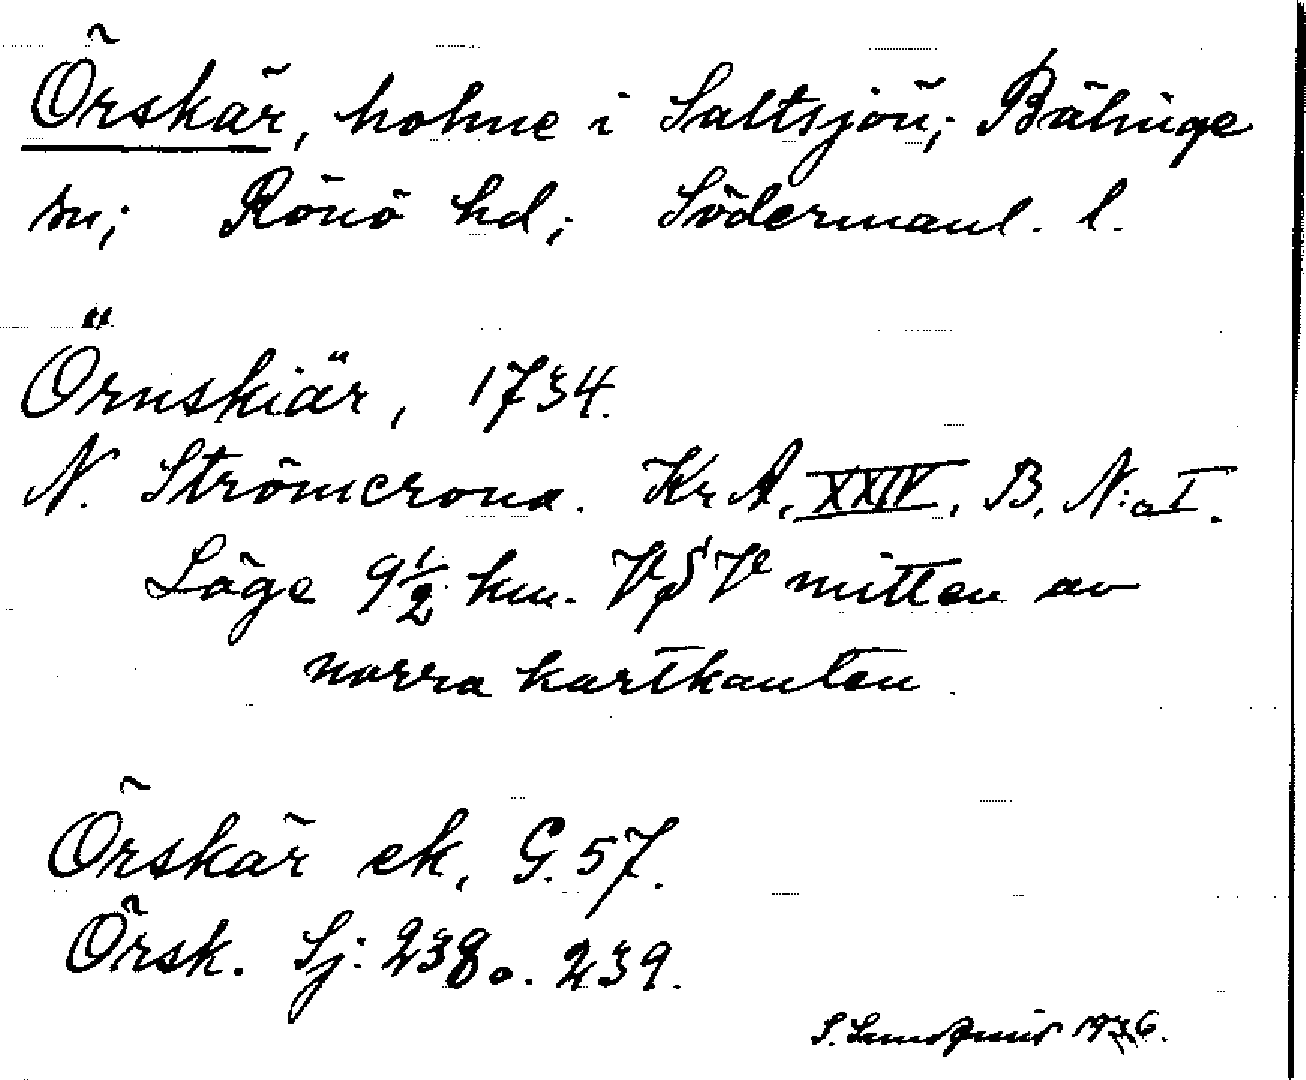 Örskär, holme i Saltsjön; Bälinge
sn; Rönö hd; Södermanl. l.
Örnskiär, 1734.
N. Strömcrona. Kr A, XXIV, B, N:o I.
Läge 9½ km. VSV mitten av
norra kartkanten.
Örskär ek, G. 57.
Örsk. Sj: 238 o. 239.
S.